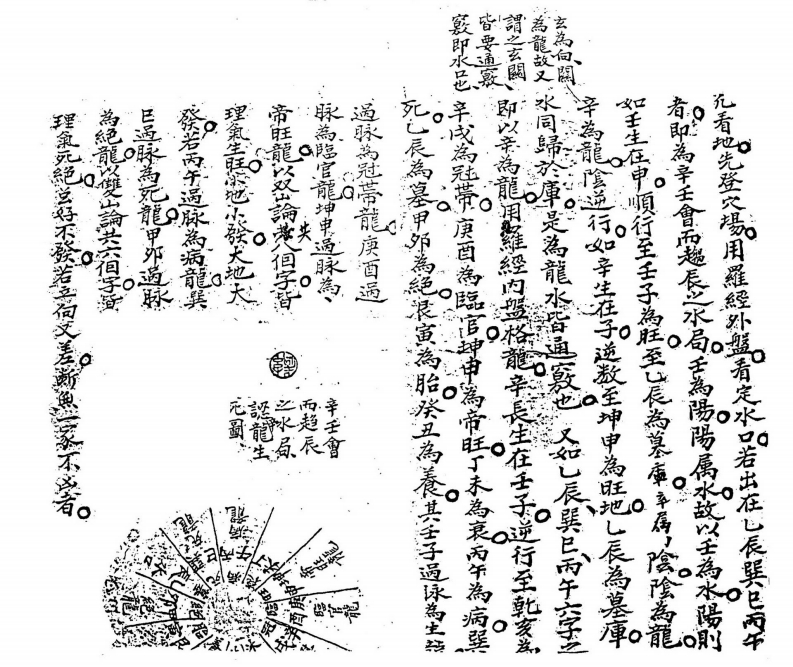 玄為向關
為龍故又
謂之玄關
皆要通竅
竅即水口也
凡看地先登穴場用羅經外盤看定水口若出在乙辰巽巳丙午
者即為辛壬會而趨辰之水局壬為陽陽属水故以壬為水陽則
如壬生在申順行至壬子為旺至乙辰為墓庫辛属陰陰為龍
辛為龍陰逆行如辛生在子逆数至坤申為旺地乙辰為墓庫
水同歸於庫是為龍水皆通竅也 又如乙辰巽巳丙午六字之
即以辛為龍用羅經内盤格龍辛長生在壬子逆行至乾亥為
辛戌為冠帶庚酉為臨官坤申為帝旺丁未為衰丙午為病巽
死乙辰為墓甲卯為絕艮寅為胎癸丑為養其壬子過脉為生
過脉為冠帶龍庚酉過
脉為臨官龍坤申過脉為
帝旺龍以双山論共八個字皆
理氣生旺小地小發大地大
發若丙午過脉為病龍巽
巳過脉為死龍甲卯過脉
為絕龍以雙山論共六個字皆
理氣死絕並好不發若立向又差斷無一家不凶者
辛壬會
而趨辰
之水局
認龍生
死圖
病龍
帝龍
臨官龍